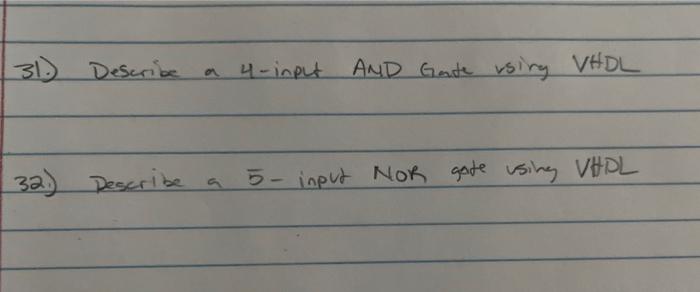 31.) Describe a 4-input AND Gate using VHDL
32.) Describe a 5-input NOR gate using VHDL